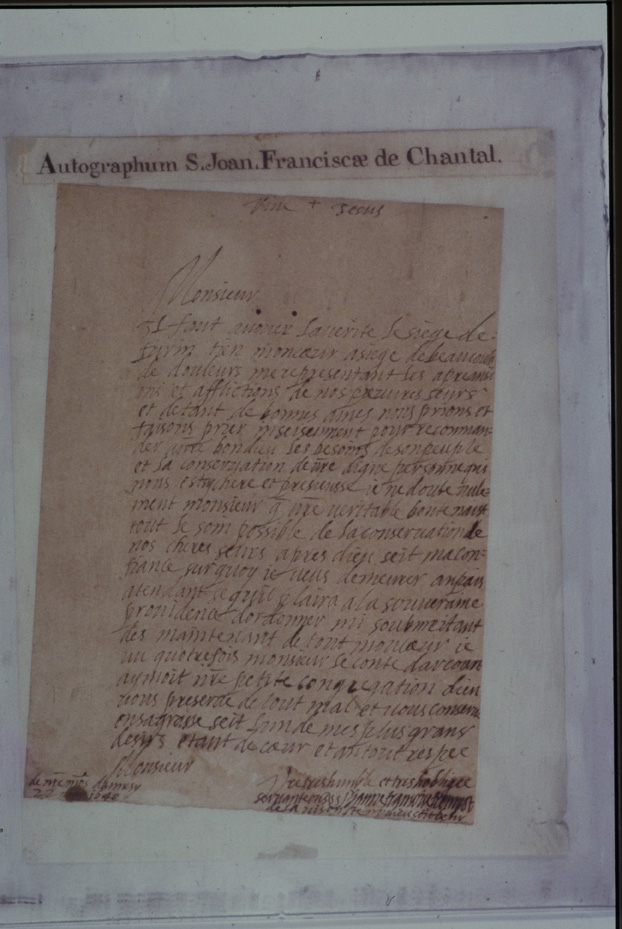 Autographum S. Joan. Franciscæ de Chantal.
Vive + Jesus
Monsieur
Il faut avouer la verite le siege de
turin tien mon cœur asiege de beaucoup
de douleurs me representant les
et afflictions de nos seurs
et de tant de bonnes ames nous prions et
faisons prier pour recomman-
der bon dieu les besoins de son peuple
et la conservation de digne personne qui
nous est chere et presieuse ie ne doute nule-
ment monsieur q vre veritable bonte naist
tout le soin possible de la conservation de
nos cheres seurs apres dieu seit ma con-
fiance sur quoy ie veus demeurer an pais
atendant ce quil plaira a la souveraine
providence dordonner mi soubmaitant
des maintenant de tout mon cœur ie
quotrefois monsieur le conte darcourt
aymoit nre petite congregation dieu
vous preserve de tout mal et vous conserve
en sa grasse seit lun de mes plus grans
desirs etant de cœur et an tout respec
Monsieur
Vre tres humble et tres hobligee
servante en